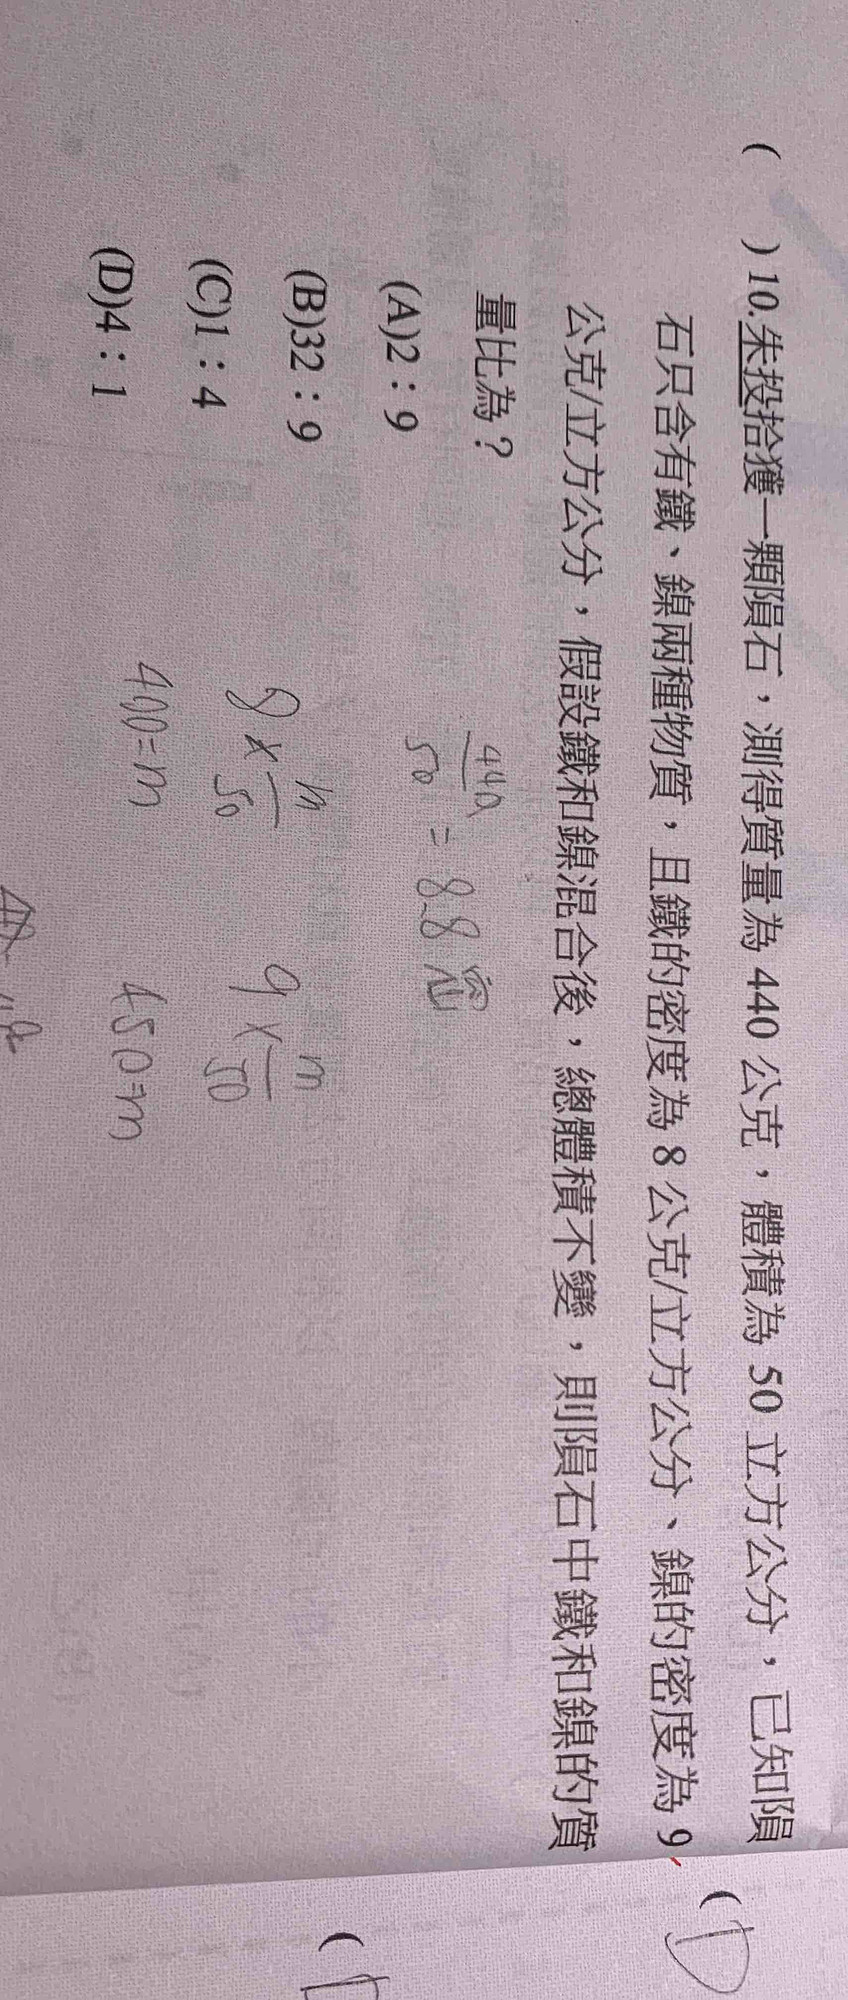 ( )10.朱投拾獲一顆隕石，測得質量為 440 公克，體積為 50 立方公分，已知隕
石只含有鐵、鎳兩種物質，且鐵的密度為 8 公克/立方公分、鎳的密度為 9
公克/立方公分，假設鐵和鎳混合後，總體積不變，則隕石中鐵和鎳的質
量比為？
(A)2：9
(B)32：9
(C)1：4
(D)4：1
440/50 = 8.8 密
8 × m/50
9 × m/50
400=m
450=m
( D
(